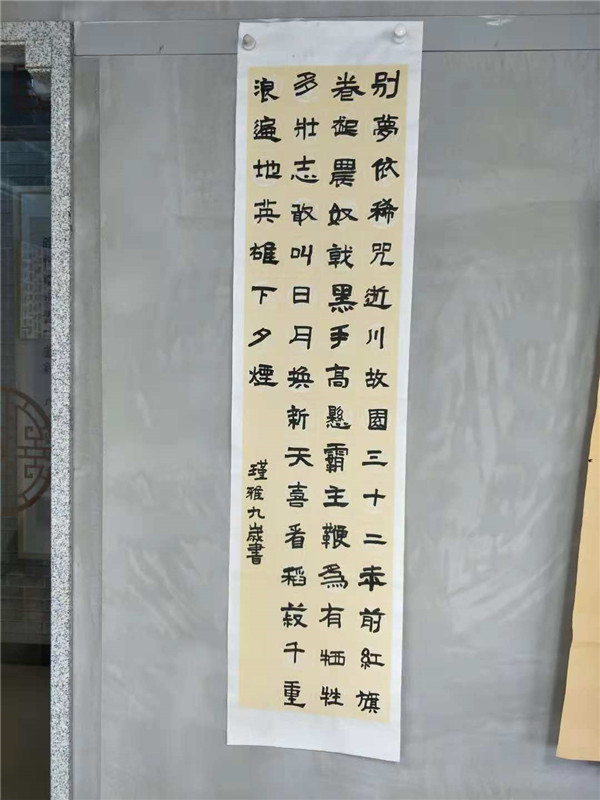 别夢依稀咒逝川故園三十二年前紅旗
卷起農奴戟黑手高懸霸主鞭爲有牺牲
多壯志敢叫日月换新天喜看稻菽千重
浪遍地英雄下夕煙
瑾雅九歲書